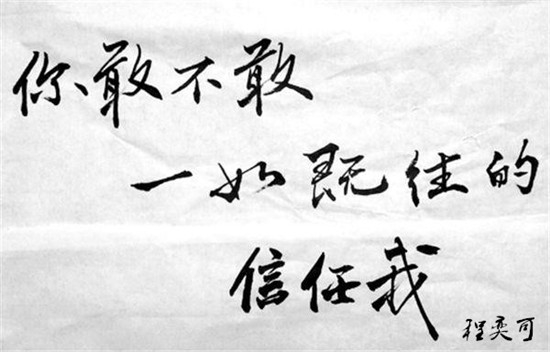 你敢不敢
一如既往的
信任我
程奕可